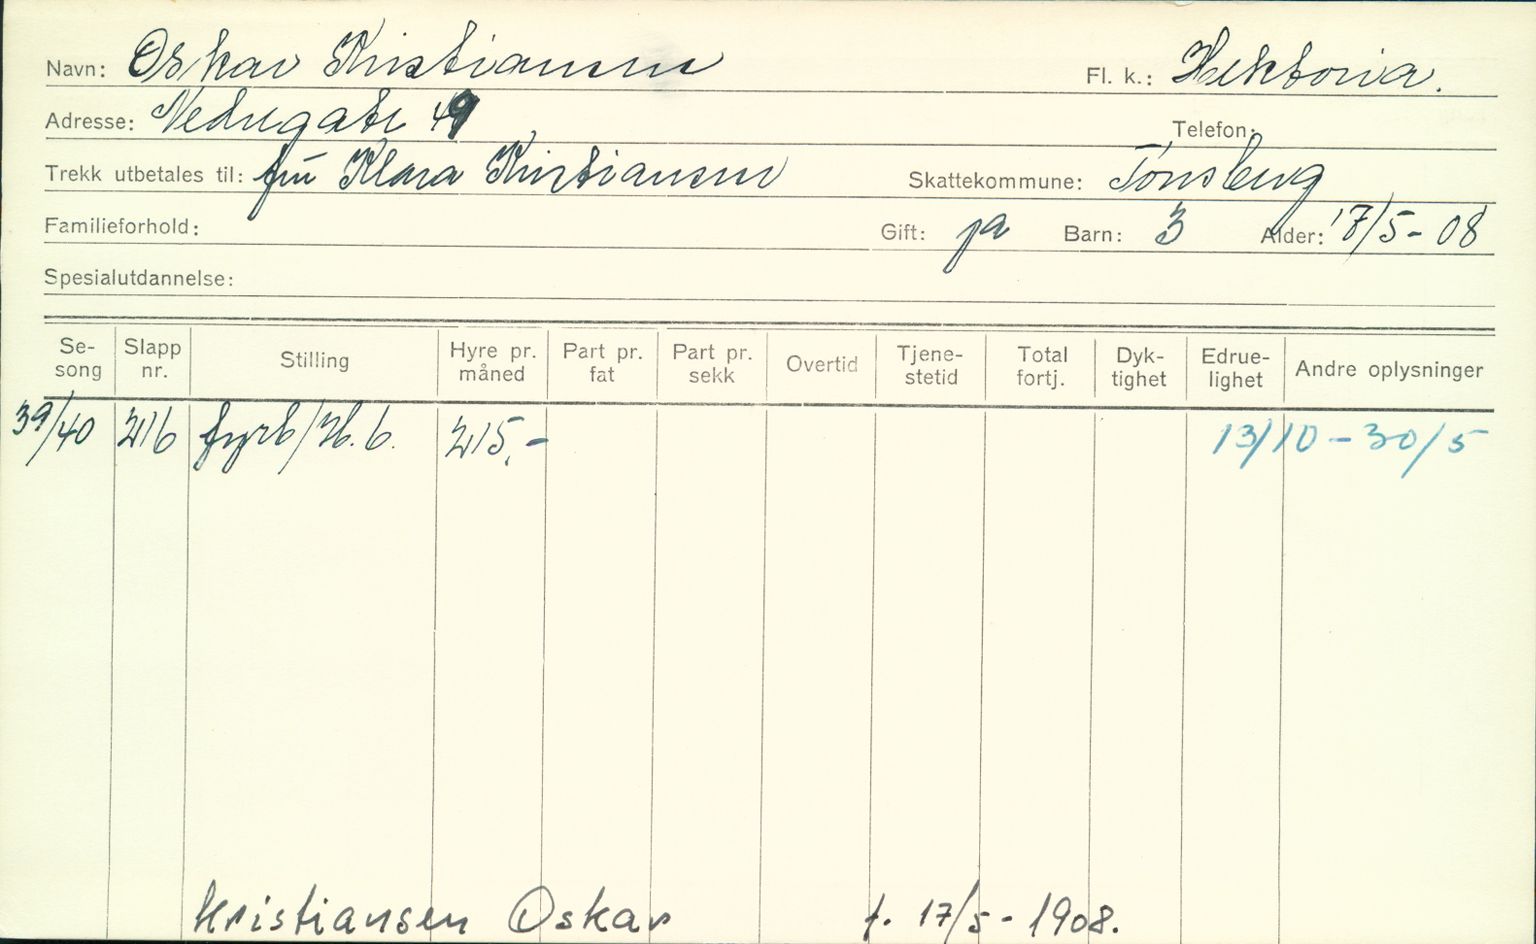 Navn: Oskar Kristiansen Fl. k.: Hektoria.
Adresse: Nedregate 49 Telefon:
Trekk utbetales til: fru Klara Kristiansen Skattekommune: Tønsberg
Familieforhold: Gift: ja Barn: 3 Alder: 17/5 - 08
Spesialutdannelse:
Se-
song Slapp
nr. Stilling Hyre pr.
måned Part pr.
fat Part pr.
sekk Overtid Tjene-
stetid Total
fortj. Dyk-
tighet Edrue-
lighet Andre oplysninger
39/40 216 fyrb/Hl. b. 215,- 13/10 - 30/5
Kristiansen Oskar f. 17/5 - 1908.